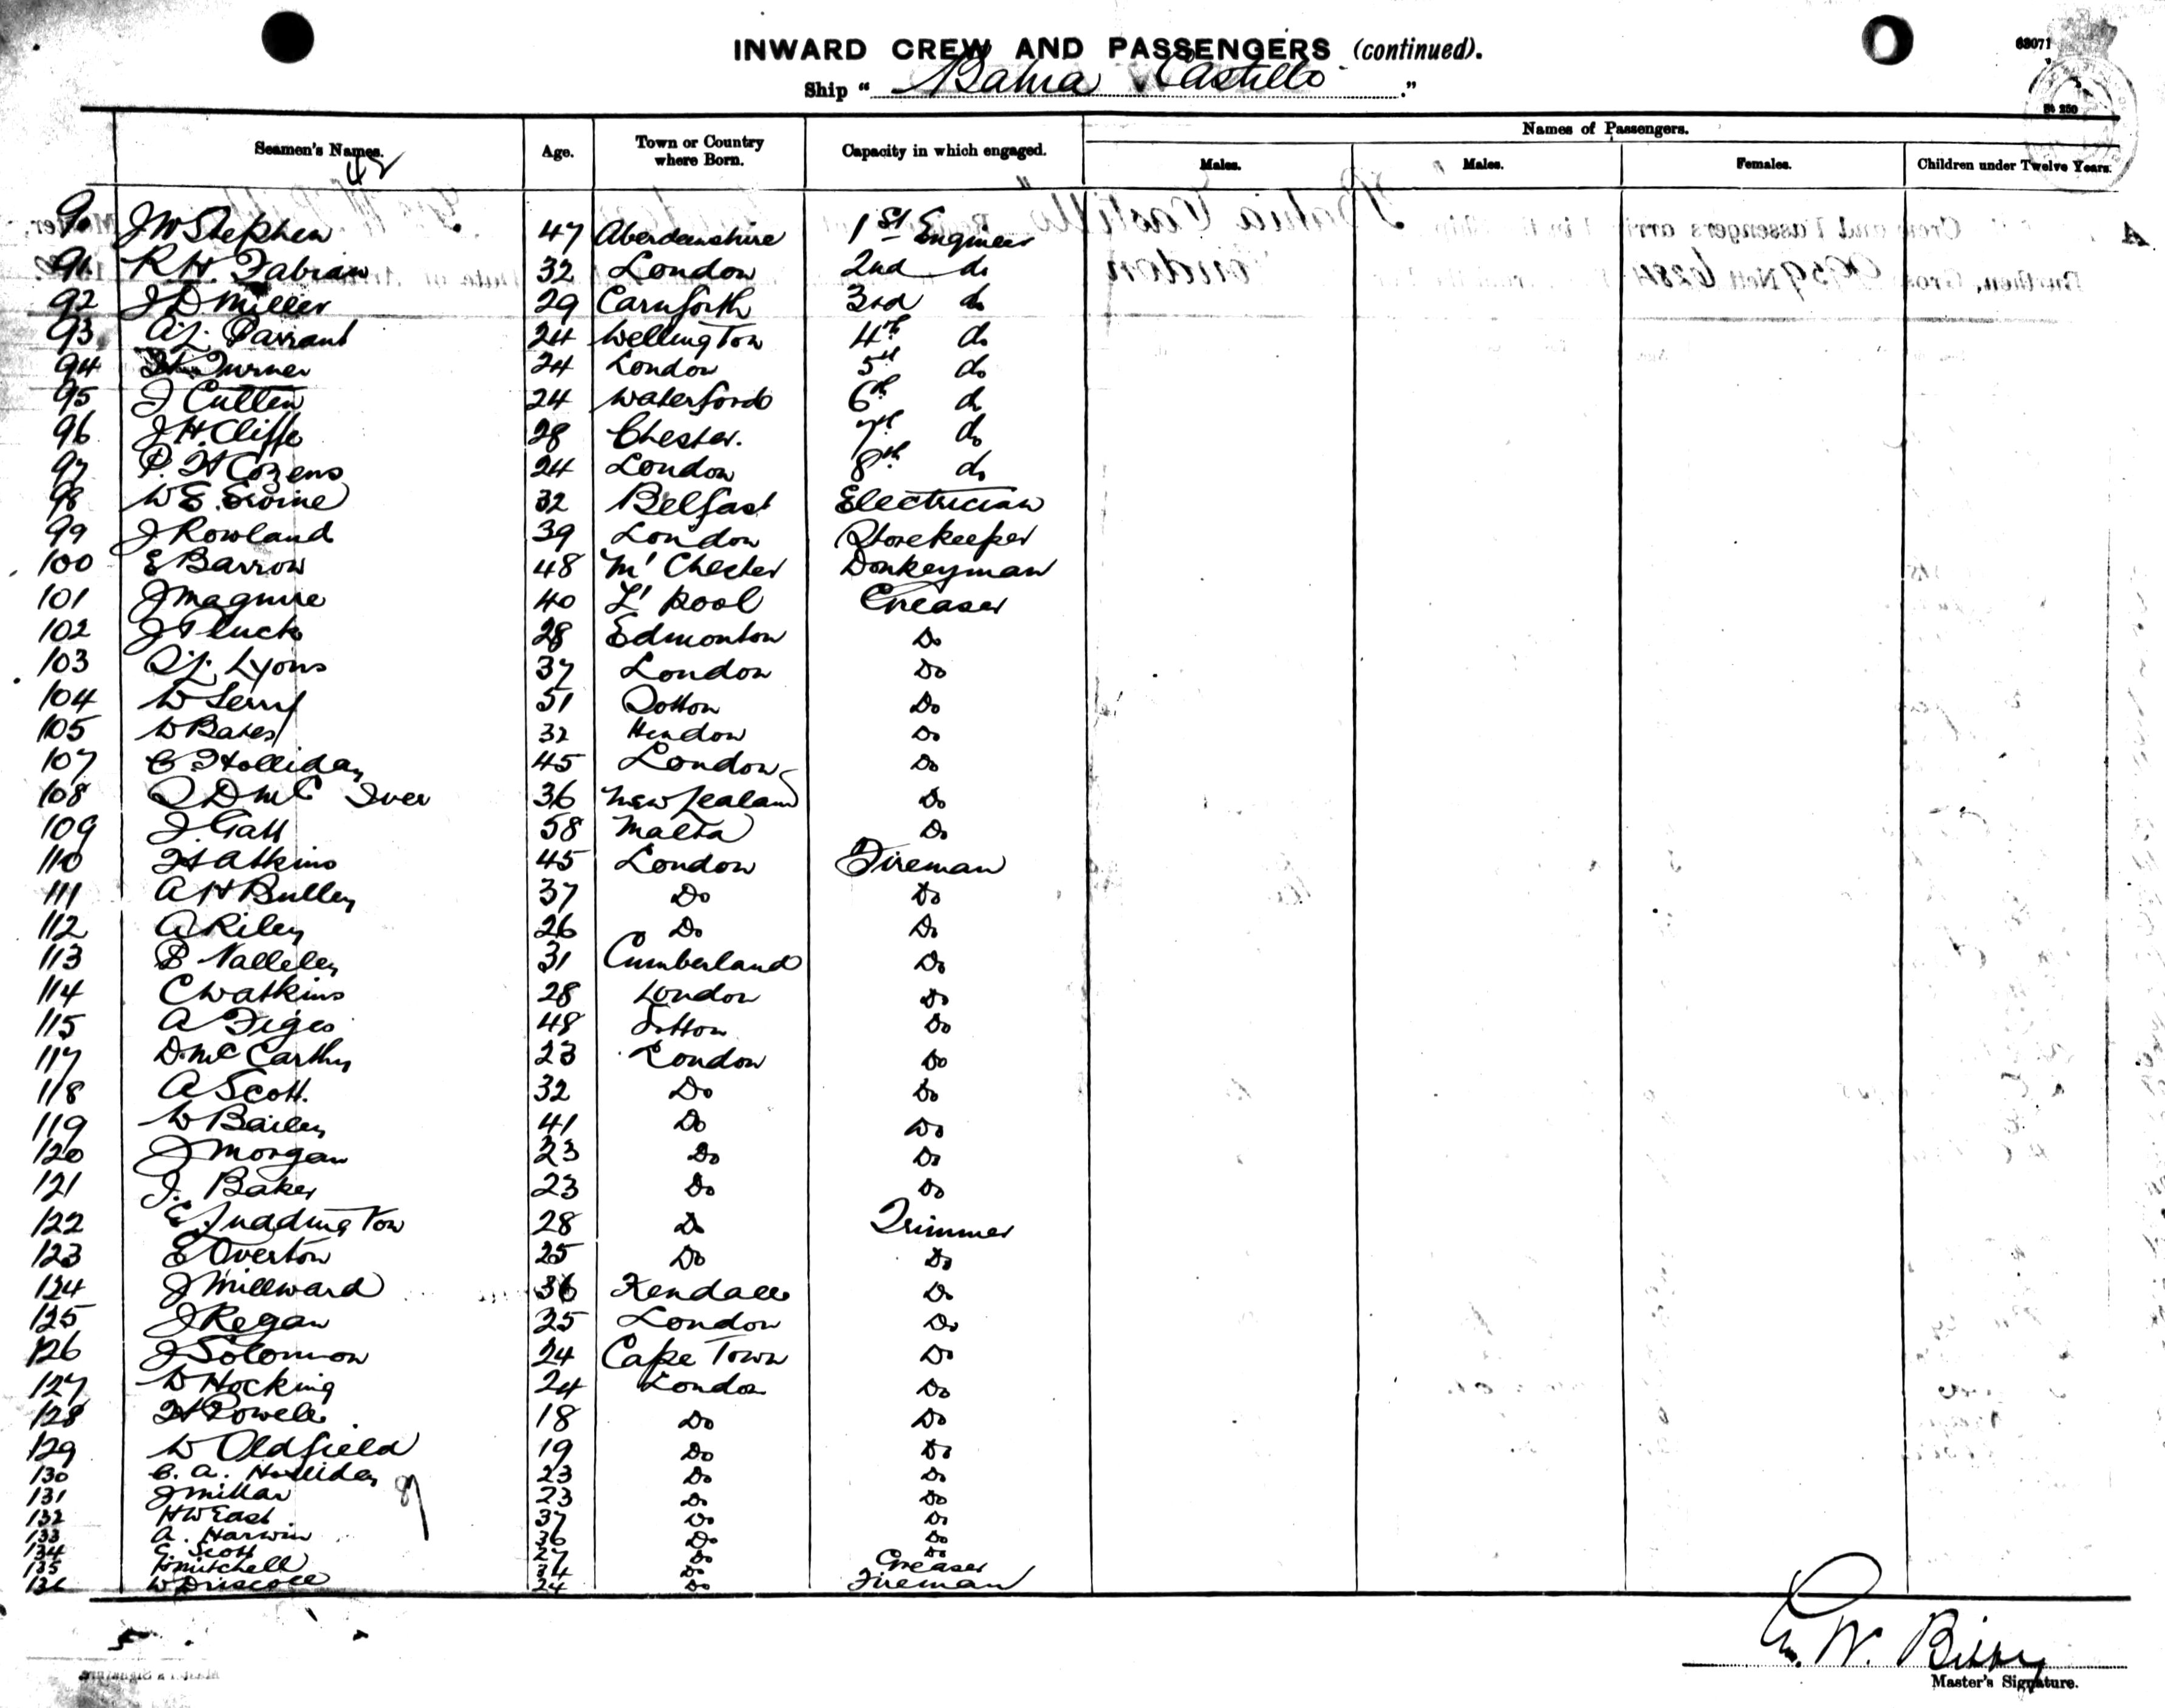 INWARD CREW AND PASSENGERS (continued).
68071
Ship " Bahia Castillo ."
Seamen's Names. Age. Town or Country where Born. Capacity in which engaged. Names of Passengers.
Males. Males. Females. Children under Twelve Years.
42
90 J W Stephen 47 Aberdeenshire 1st Engineer
91 R H. Fabian 32 London 2nd do
92 J D Miller 29 Carnforth 3rd do
93 A J. Parrant 24 Wellington 4th do
94 Turner 24 London 5th do
95 J Cutten 24 Waterford 6th do
96 J H. Cliffe 28 Chester. 7th do
97 P. H Cozens 24 London 8th do
98 W E. Ervine 32 Belfast Electrician
99 J Rowland 39 London Storekeeper
100 E Barrow 48 M' Chester Donkeyman
101 J Maguire 40 L' pool Greaser
102 J Pluck 28 Edmonton Do
103 J. Lyons 37 London Do
104 W Terry 51 Totton Do
105 W Bates 32 Hendon Do
107 C Holliday 45 London Do
108 D McIver 36 New Zealand Do
109 J. Gatt 58 Malta Do
110 H Atkins 45 London Fireman
111 A H Bulley 37 Do Do
112 A Riley 26 Do Do
113 P Nalleley 31 Cumberland Do
114 C Watkins 28 London Do
115 A Figes 48 Totton Do
117 D. McCarthy 23 London Do
118 A Scott. 32 Do Do
119 W Bailey 41 Do Do
120 J Morgan 23 Do Do
121 J. Baker 23 Do Do
122 E. Juddington 28 Do Trimmer
123 E Overton 25 Do Do
124 J Millward 36 Kendall Do
125 J Regan 25 London Do
126 J Solomon 24 Cape Town Do
127 W Hocking 24 London Do
128 H Powell 18 Do Do
129 W Oldfield 19 Do Do
130 C. A. Holliday 23 Do Do
131 J Millar 23 Do Do
132 H W East 37 Do Do
133 A. Harwin 36 Do Do
134 G. Scott 27 Do Do
135 Mitchell 34 Do Greaser
136 W Driscoll 24 Do Fireman
W. Bibby
Master's Signature.